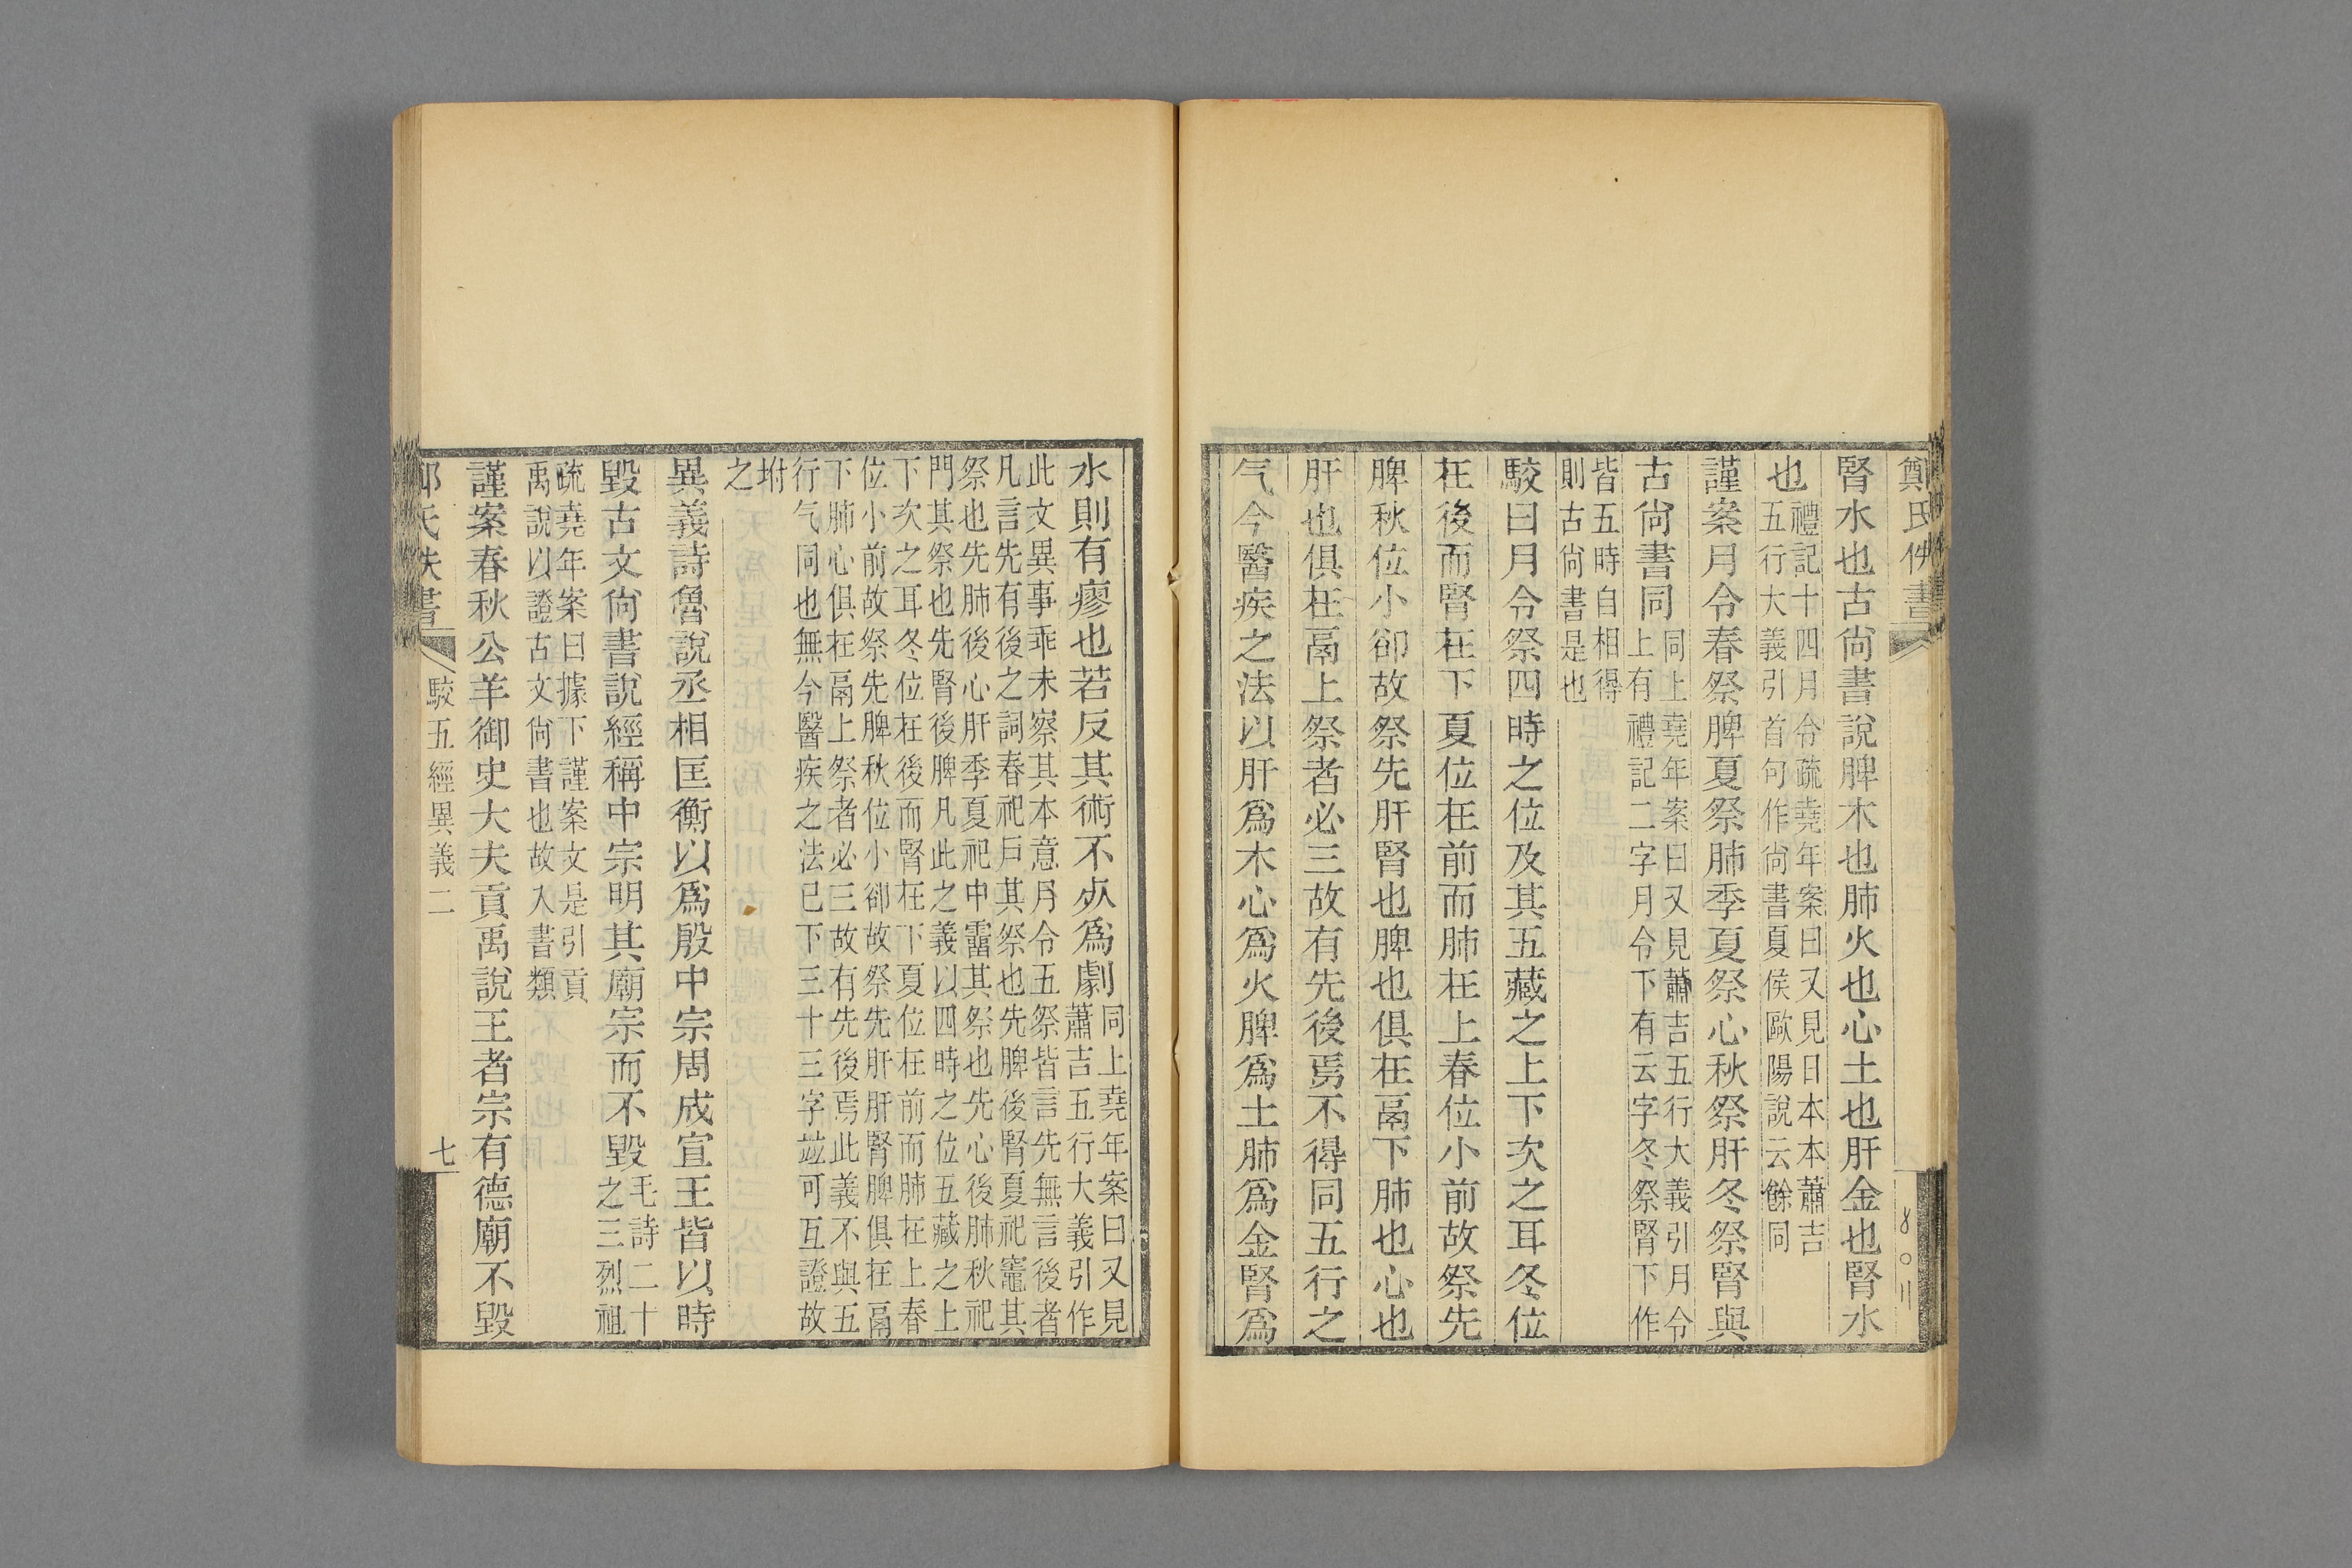 鄭氏佚書
腎水也古尙書說脾木也肺火也心土也肝金也腎水
也禮記十四月令疏堯年案曰又見日本本蕭吉
五行大義引首句作尙書夏侯歐陽說云餘同
謹案月令春祭脾夏祭肺季夏祭心秋祭肝冬祭腎與
古尙書同同上堯年案曰又見蕭吉五行大義引月令
上有禮記二字月令下有云字冬祭腎下作
皆五時自相得
則古尙書是也
駮曰月令祭四時之位及其五藏之上下次之耳冬位
在後而腎在下夏位在前而肺在上春位小前故祭先
脾秋位小卻故祭先肝腎也脾也俱在鬲下肺也心也
肝也俱在鬲上祭者必三故有先後焉不得同五行之
气今醫疾之法以肝爲木心爲火脾爲土肺爲金腎爲
水則有瘳也若反其術不死爲劇同上堯年案曰又見
蕭吉五行大義引作
此文異事乖未察其本意月令五祭皆言先無言後者
凡言先有後之詞春祀戶其祭也先脾後腎夏祀竈其
祭也先肺後心肝季夏祀中霤其祭也先心後肺秋祀
門其祭也先腎後脾凡此之義以四時之位五藏之上
下次之耳冬位在後而腎在下夏位在前而肺在上春
位小前故祭先脾秋位小卻故祭先肝肝腎脾俱在鬲
下肺心俱在鬲上祭者必三故有先後焉此義不與五
行气同也無今醫疾之法已下三十三字竝可互證故
坿
之
異義詩魯說丞相匡衡以爲殷中宗周成宣王皆以時
毀古文尙書說經稱中宗明其廟宗而不毀毛詩二十
之三烈祖
疏堯年案曰據下謹案文是引貢
禹說以證古文尙書也故入書類
謹案春秋公羊御史大夫貢禹說王者宗有德廟不毀
氏佚書
駮五經異義二
七